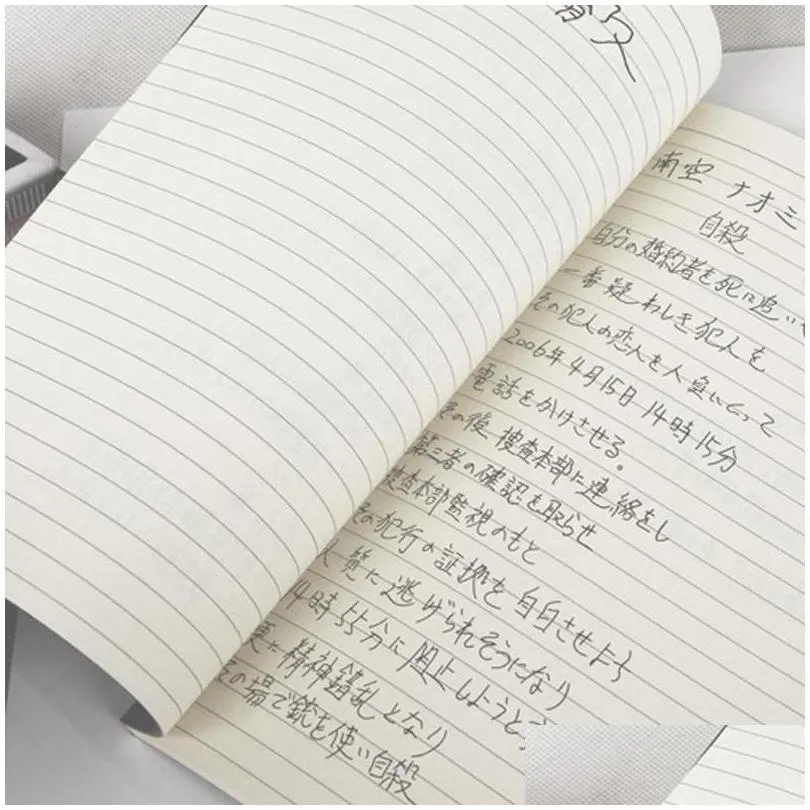 南空 ナオミ
自殺
自分の婚約者を死に追いや
一番疑わしき犯人を
その犯人の恋人を人質にとって
2006年4月15日 14時15分
電話をかけさせる。
その後 捜査本部に連絡をし
第三者の確認を取らせ
捜査本部監視のもと
その犯行の証拠を自白させよう
人質に逃げられそうになり
14時55分に阻止しようと
更に精神錯乱となり
その場で銃を使い自殺